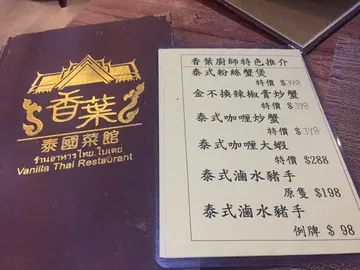 香葉
泰國菜館
ร้านอาหารไทย.ใบเตย
Vanilla Thai Restaurant
香葉廚師特色推介
泰式粉絲蟹煲
特價 $398
金不換辣椒膏炒蟹
特價 $398
泰式咖喱炒蟹
特價 $398
泰式咖喱大蝦
特價 $288
泰式滷水豬手
原隻 $198
泰式滷水豬手
例牌 $ 98